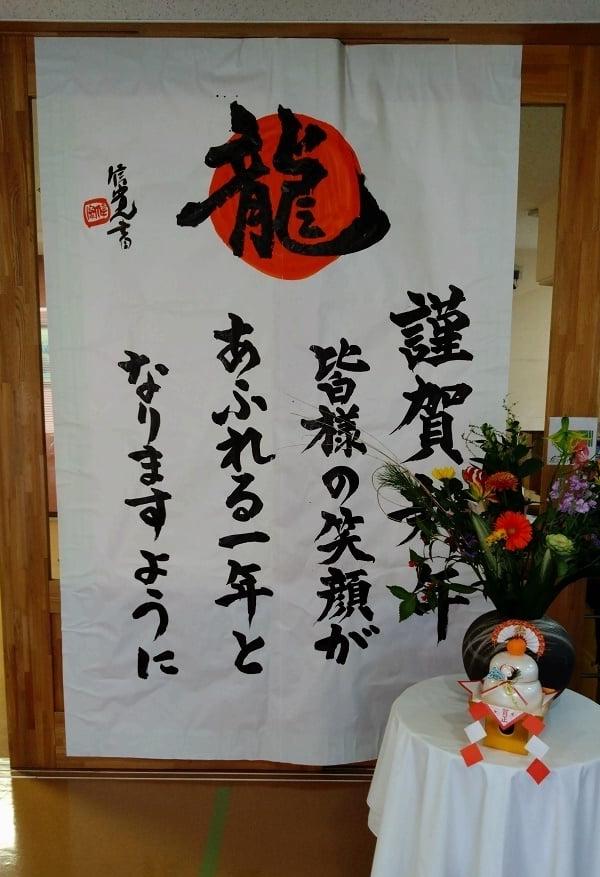 龍
謹賀新年
皆様の笑顔が
あふれる一年と
なりますように
信覚書
賀正